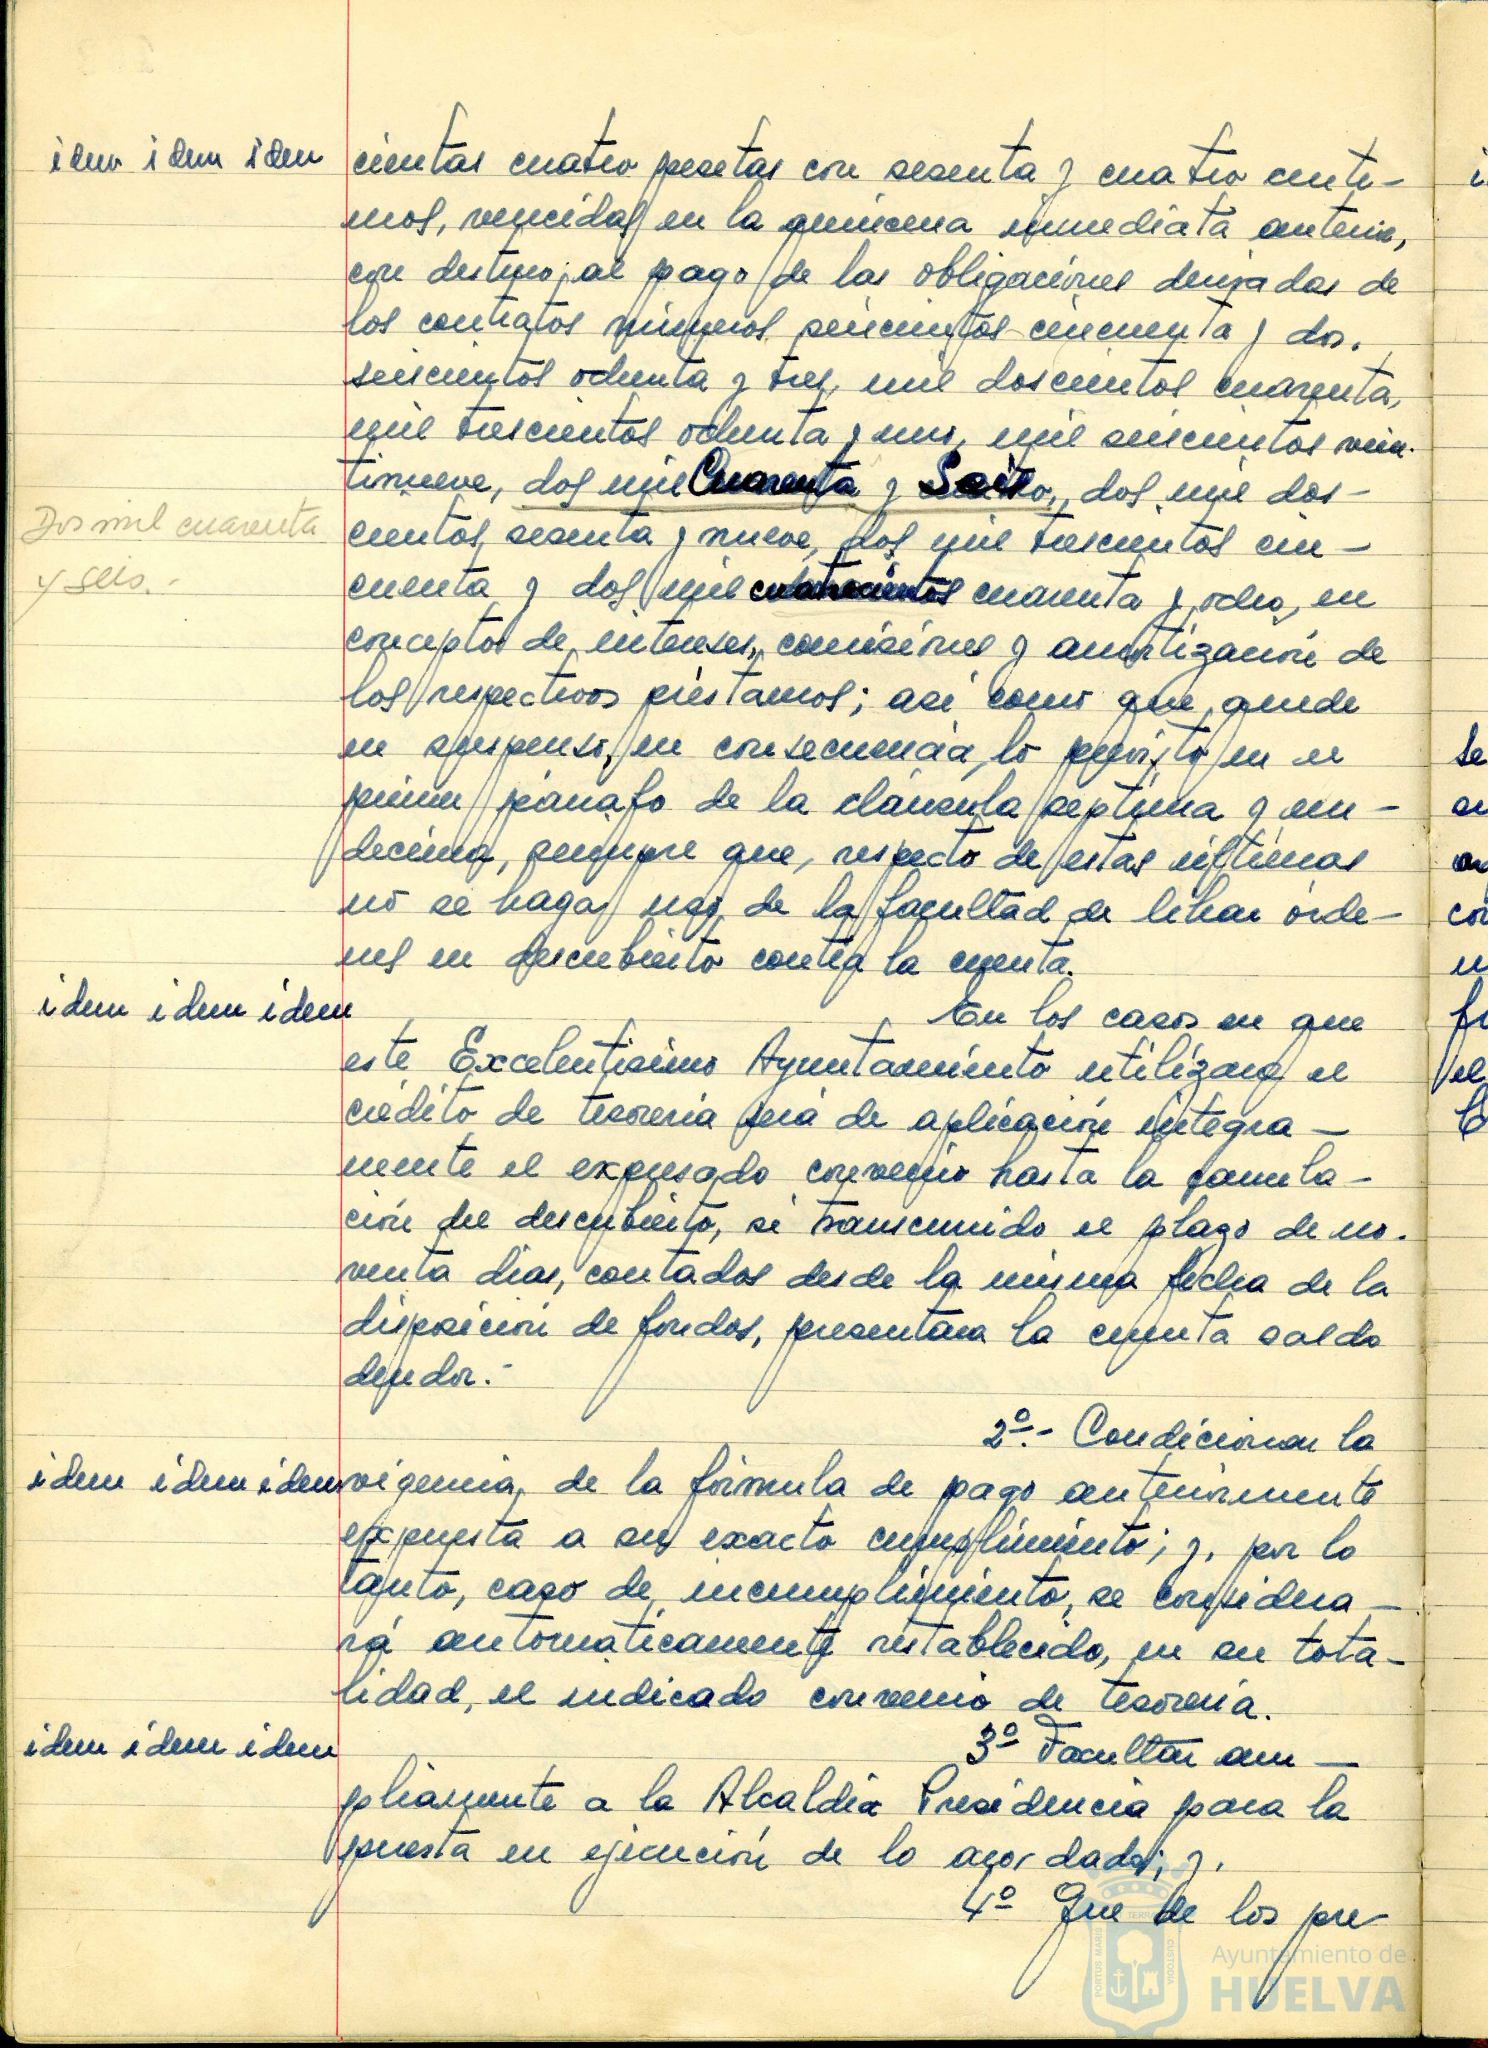 idem idem idem
cientas cuatro pesetas con sesenta y cuatro cénti-
mos, vencidas en la quincena inmediata anterior,
con destino, al pago de las obligaciones derivadas de
los contratos números seiscientos cincuenta y dos,
seiscientos ochenta y tres, mil doscientos cuarenta,
mil trescientos ochenta y uno, mil seiscientos vein-
tinueve, dos mil Cuarenta y Seis, dos mil dos-
Dos mil cuarenta
y seis.-
cientos sesenta y nueve, dos mil trescientos cin-
cuenta y dos mil cuatrocientos cuarenta y ocho, en
conceptos de intereses, comisiones y amortización de
los respectivos préstamos; así como que quede
en suspenso, en consecuencia, lo previsto en el
primer párrafo de la cláusula séptima y un-
décima, siempre que, respecto de estas últimas
no se haga uso de la facultad de librar órde-
nes en descubierto contra la cuenta.
idem idem idem
En los casos en que
este Excelentísimo Ayuntamiento utilizara el
crédito de tesorería será de aplicación integra-
mente el expresado convenio hasta la cancela-
ción del descubierto, si transcurrido el plazo de no-
venta dias, contados desde la misma fecha de la
disposición de fondos, presentara la cuenta saldo
deudor.-
2º.- Condicionar la
idem idem idem
vigencia, de la fórmula de pago anteriormente
expuesta a su exacto cumplimiento; y, por lo
tanto, caso de incumplimiento, se considera-
rá automáticamente restablecido, en su tota-
lidad, el indicado convenio de tesorería.
idem idem idem
3º Facultar am-
pliamente a la Alcaldía Presidencia para la
puesta en ejecución de lo acordado; y.
4º Que de los pre-
PORTUS MARIS
TERRAE
CUSTODIA
Ayuntamiento de
HUELVA